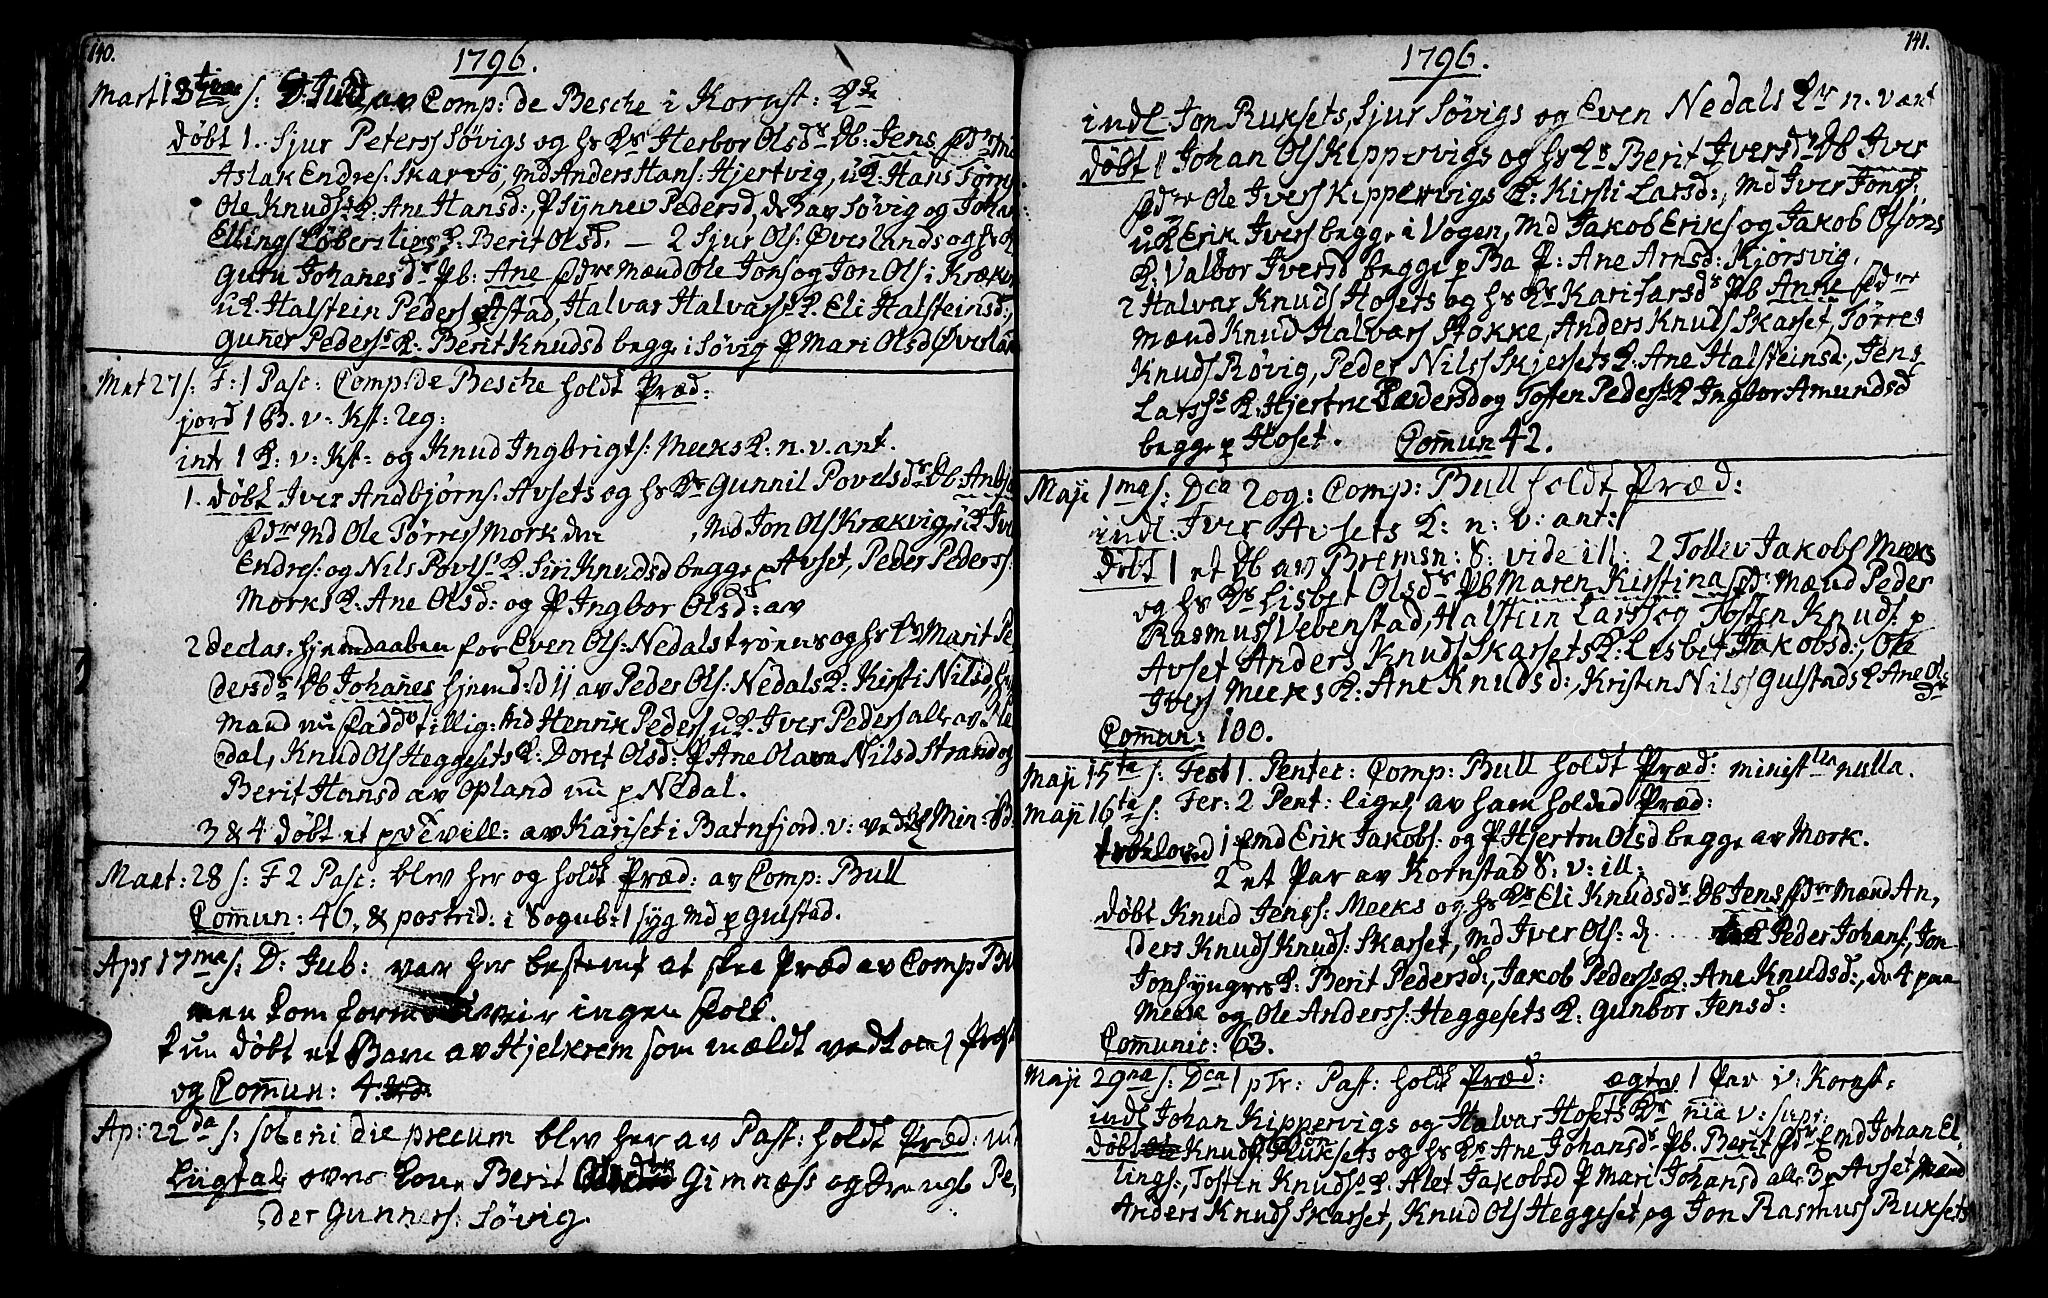 140.
1796.
Mart 13 s: D: Jud, av Comp: de Besche i Kornst: K
Døbt 1. Sjur Peters Søvigs og hs Ks Herbor Olsds Db: Jens
Aslak Endres: Skarsø, Md Anders Hans: Hjertvig, uK: Hans Tørres
Ole Knuds K: Ane Hansd:, P Synnev Pedersd, de 3 av Søvig og Joha
Ellings Løberslies K: Berit Olsd, — 2 Sjur Ols: Øverlands og hs
Guru Johanesds Pb: Ane Mænd Ole Jons og Jon Ols i Krækv
uK Halstein Peders Astad, Halvar Halvars K. Eli Halsteinsd:,
Guner Peders K: Berit Knudsd begge i Søvig P Mari Olsd Øverland
Mart 27 s: F: 1 Pasc: Comp: de Besche holdt Præd:
jord 1 B. v: Kst: Reg:
intr 1 K: v: Kst: og Knud Ingbrigts: Meeks K: n. v. ant.
1. Døbt Iver Andbjørns: Avsets og hs Ks Gunnil Povelsds Db: Anbjø
Md Ole Tørres Mork den , Md Jon Ols Krækvig, uK Iver
Endres: og Nils Povls: K: Siri Knudsd begge p Avset, Peder Peders:
Morks K: Ane Olsd: og P Ingbor Olsd: av
2 declar: hjemdaaben for Even Ols: Nedals trøens og hs Ks Marit Pe
dersds Db Johanes hjemd: d 11 av Peder Ols: Nedals K: Kirsti Nilsd,
Mænd nu Fadd tillig: Md Henrik Peders, uK. Iver Peders alle av Ne
dal, Knud Ols Heggesets K: Doret Olsd: P Ane Olava Nilsd Strand og
Berit Hansd av Opland nu p Nedal.
3 & 4 Døbt et p vill: av Kariset i Batnfjord. v: ved Min: B:
Mart: 28 s: F 2 Pasc: blev her og holdt Præd: av Comp: Bull
Comun: 46, & postrid: i Sogub: 1 syg Md p Gulstad.
Apr 17ma s: D: Jub: var her bestemt at skee Præd av Comp Bull
men kom ingen Folk.
kun Døbt et Barn av Hjelkrem som mældt ved Præst
og Comun: 4
Ap: 22da s: solenni die precum blev her av Past: holdt Præd:
Liigtale over Kone Berit Gimnæs og Drengs Pe,
der Gunners: Søvig.
141.
1796.
indl Jon Ruksets, Sjur Søvigs og Even Nedals Kr n. v. ant
Døbt 1 Johan Ols Kippervigs og hs Ks Berit Iversds Db Iver
Ole Ivers Kippervigs K: Kirsti Larsd:, Md Iver Jons:
uK Erik Ivers begge i Vogen, Md Jakob Eriks og Jakob Olsøns
K: Valbor Iversd begge p Bæ P: Ane Arnsd: Kjørsvig.
2 Halvar Knuds Hosets og hs Ks Kari Larsds Pb Anne
Mænd Knud Halvars Stokke, Anders Knuds Skarset, Tørres
Knuds Røvig, Peder Nils Skjersets K: Ane Halsteinsd:, Jens
Lars K: Hjertru Pedersd og Tosten Peders K Ingbor Amundsd
begge p Hoset. Comun 42.
Maji 1ma s: Dca Rog: Comp: Bull holdt Præd:
indl: Iver Avsets K: n: v: ant:
Døbt 1 et Db av Bremsn: S: vide ill: 2 Tolliv Jakobs Meeks
og hs Ks Lisbet Olsds Pb Maren Kirstina Mænd Peder
Rasmus Vebenstad, Halstein Lars og Tosten Knuds: p
Avset Anders Knuds Skarsets K: Lisbet Jakobsd:, Ole
Ivers Meeks K: Ane Knudsd:, Kristen Nils Gulstads K Ane Ols
d
Comun: 100.
Maji 15ta s: Fest 1. Pentec: Comp: Bull holdt Præd: minist nulla.
Maji 16ta s: Fer: 2 Pent: liges av ham holded Præd:
trolovd 1 Emd Erik Jakobs: og P Hjertru Olsd begge av Mork.
2 et Par av Kornstad S: v: ill:
Døbt Knud Jens: Meeks og hs Ks Eli Knudsds Db Jens Mænd An,
ders Knuds Knuds: Skarset, Md Iver Ols: d .... Peder Johans, Jon
Jons yngres K: Berit Pedersd:, Jakob Peders K: Ane Knudsd:, de 4 paa
Meek og Ole Anders: Heggesets K: Gunbor Jensd:
Comunic: 63.
Maji 29na s: Dca 1 p Tr: Past: holdt Præd: ægtev 1 Par v: Kornst:
indl Johan Kippervigs og Halvar Hosets Kr nia v: supr:
Døbt Knud Ruksets og hs Ks Ane Johansds Pb. Berit Emd Johan El,
lings:, Tosten Knuds K. Alet Jakobsd P Mari Johansd alle 3 p Avset Mænd
Anders Knuds Skarset, Knud Ols Heggeset, og Jon Rasmus Ruksets